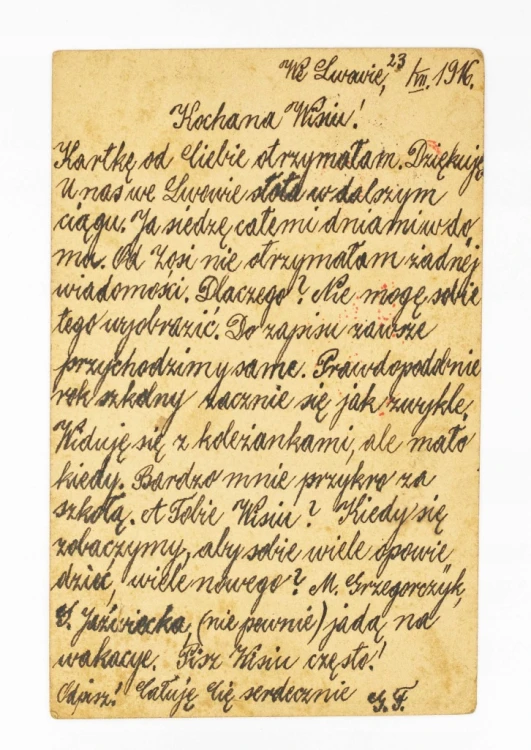 We Lwowie, 23 VII. 1916.
Kochana Wisiu!
Kartkę od Ciebie otrzymałam. Dziękuję
U nas we Lwowie słota w dalszym
ciągu. Ja siedzę całemi dniami w do
mu. Od Zosi nie otrzymałam żadnej
wiadomości. Dlaczego? Nie mogę sobie
tego wyobrazić. Do zapisu zawsze
przychodzimy same. Prawdopodobnie
rok szkolny zacznie się jak zwykle.
Widuję się z koleżankami, ale mało
kiedy. Bardzo mnie przykro za
szkołą. A Tobie Wisiu? Kiedy się
zobaczymy, aby sobie wiele opowie
dzieć, wiele nowego? M. Grzegorczyk,
J. Jaźwiecka, (nie pewnie) jadą na
wakacye. Pisz Wisiu często!
Odpisz! Całuję Cię serdecznie G. F.